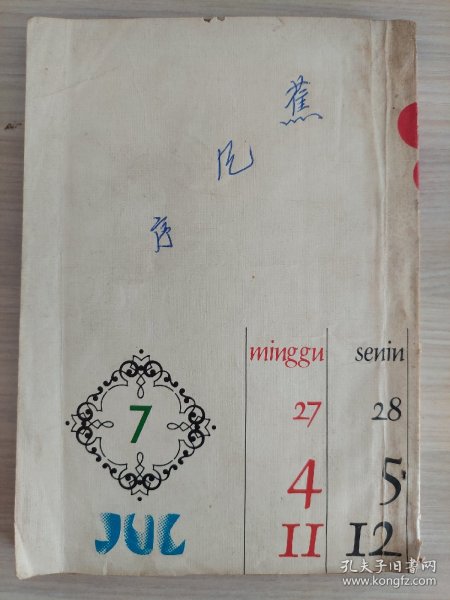 蕉
序
minggu senin
27 28
7
4 5
JUL
11 12
孔夫子旧书网
www.kongfz.com